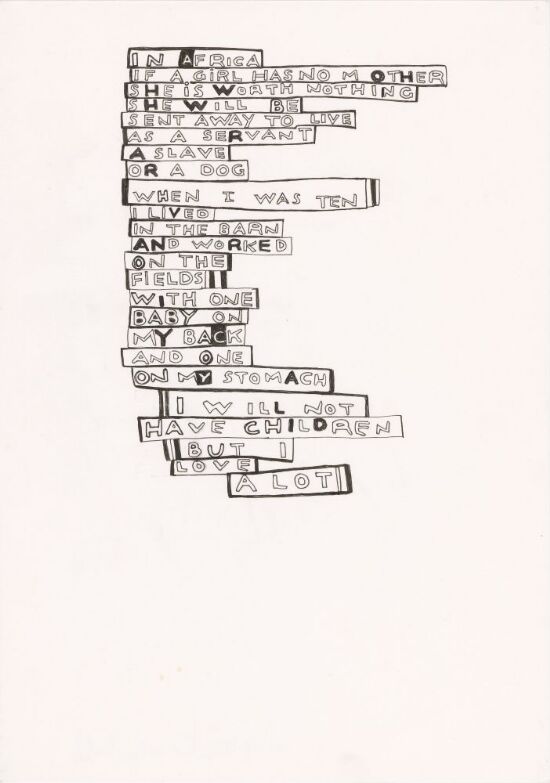 IN AFRICA
IF A GIRL HAS NO MOTHER
SHE IS WORTH NOTHING
SHE WILL BE
SENT AWAY TO LIVE
AS A SERVANT
A SLAVE
OR A DOG
WHEN I WAS TEN
I LIVED
IN THE BARN
AND WORKED
ON THE
FIELDS
WITH ONE
BABY ON
MY BACK
AND ONE
ON MY STOMACH
I WILL NOT
HAVE CHILDREN
BUT I
LOVE
A LOT